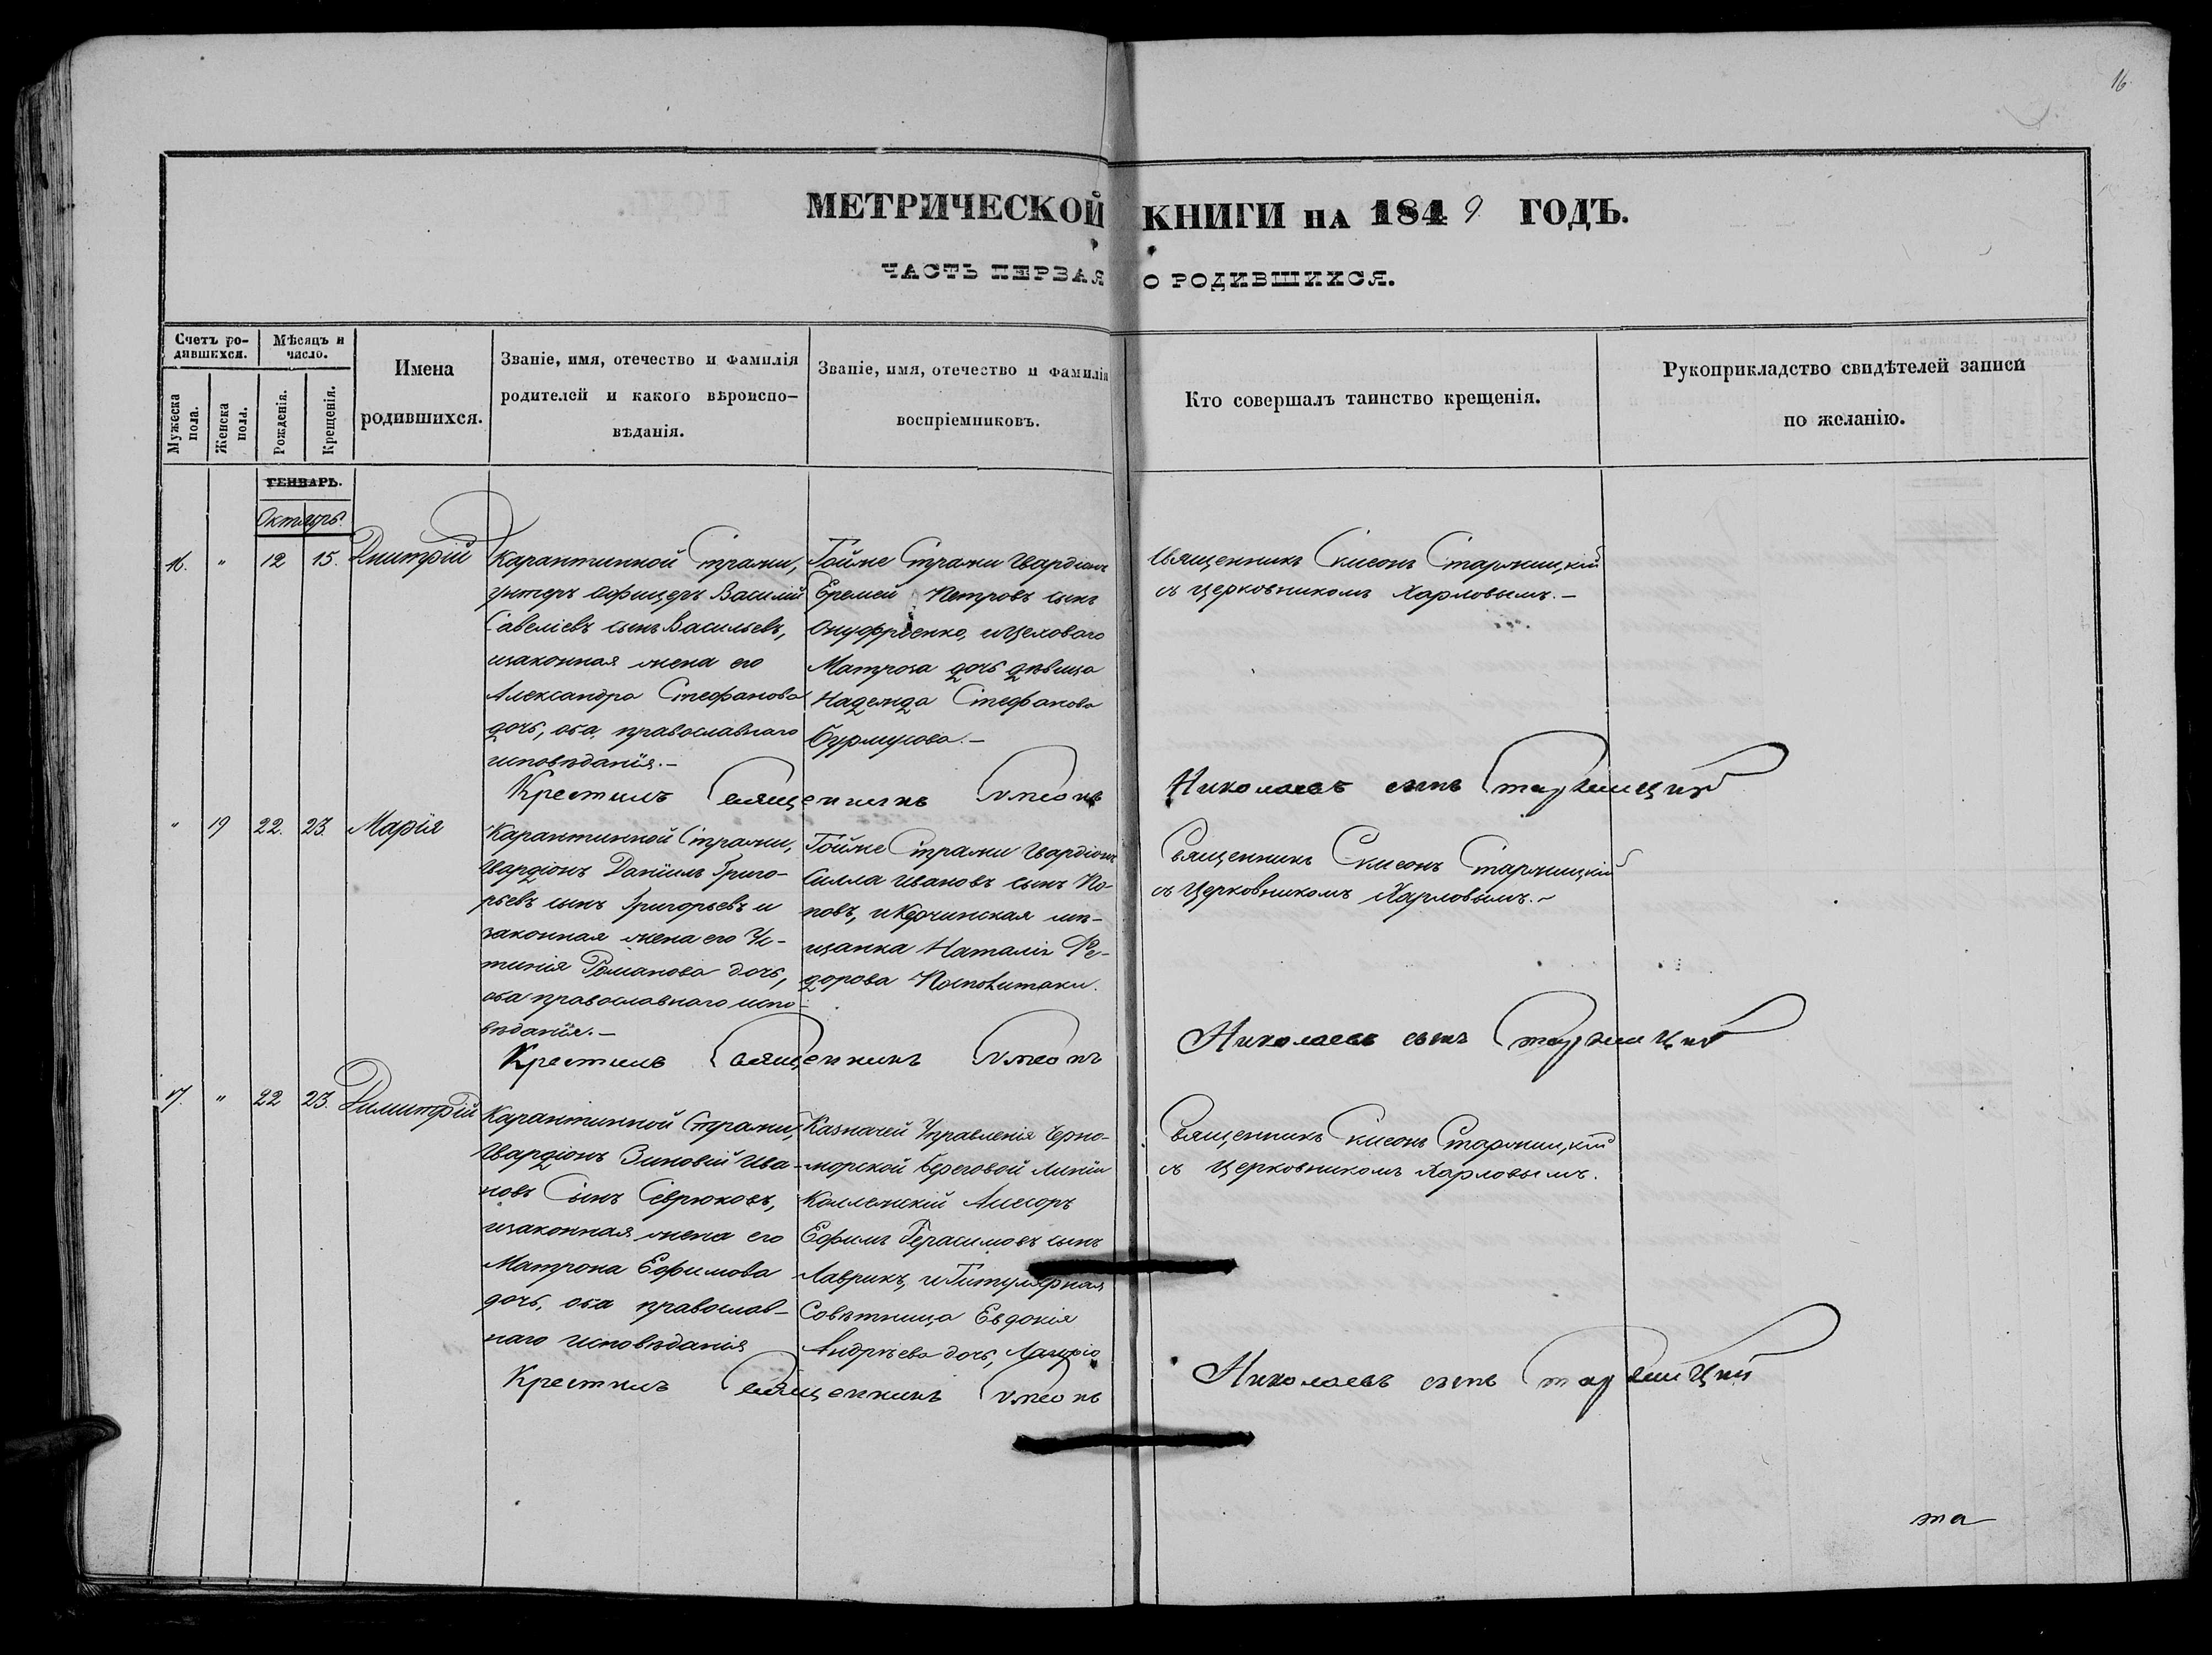 16
МЕТРИЧЕСКОЙ КНИГИ на 1849 ГОДЪ.
ЧАСТЬ ПЕРВАЯ О РОДИВШИХСЯ.
Счетъ ро-
дившихся.
Мужеска
пола.
Женска
пола.
Мѣсяцъ и
число.
Рожденія.
Крещенія.
Имена
родившихся.
Званіе, имя, отечество и фамилія
родителей и какого вѣроиспо-
вѣданія.
Званіе, имя, отечество и фамилія
воспріемниковъ.
Кто совершалъ таинство крещенія.
Рукоприкладство свидѣтелей записи
по желанію.
ГЕНВАРЬ.
Октябрь.
16. " 12 15. Дмитрій
Карантинной Стражи,
унтеръ Офицеръ Василій
Савеліевъ сынъ Васильевъ,
изаконная жена его
Александра Стефанова
дочь, оба православнаго
исповѣданія.—
Тойже Стражи Гвардіонъ
Еремей Петровъ сынъ
Онуфріенко, ицеховаго
Матроза дочь дѣвица
Надежда Стефанова
Священникъ Симеонъ Старжицкій
съ церковникомъ Харловымъ.—
Крестилъ Священникъ Симеонъ Николаевъ сынъ Старжицкій
" 19 22. 23. Марія
Карантинной Стражи,
Гвардіонъ Даніилъ Григо-
рьевъ сынъ Григорьевъ и
законная жена его Ус-
тинія Романова дочь,
оба православнаго испо-
вѣданія.—
Тойже Стражи Гвардіонъ
Силла Ивановъ сынъ По-
повъ, и Керчинская мѣ-
щанка Наталія Ѳе-
дорова
Священникъ Симеонъ Старжицкій
съ Церковникомъ Харловымъ.—
Крестилъ Священникъ Симеонъ Николаевъ сынъ Старжицкій
17. " 22 23. Димитрій
Карантинной Стражи,
Гвардіонъ Зиновій Ива-
новъ Сынъ Севрюковъ,
изаконная жена его
Матрона Ефимова
дочь, оба православ-
наго исповѣданія
Казначей Управленія Черно-
морской Береговой Линіи
Коллежскій Ассесоръ
Ефимъ Герасимовъ сынъ
Лаврикъ, и Титулярная
Совѣтница Евдокія
Андрѣева дочь,
Священникъ Симеонъ Старжицкій
съ Церковникомъ Харловымъ.
Крестилъ Священникъ Симеонъ Николаевъ сынъ Старжицкій
та